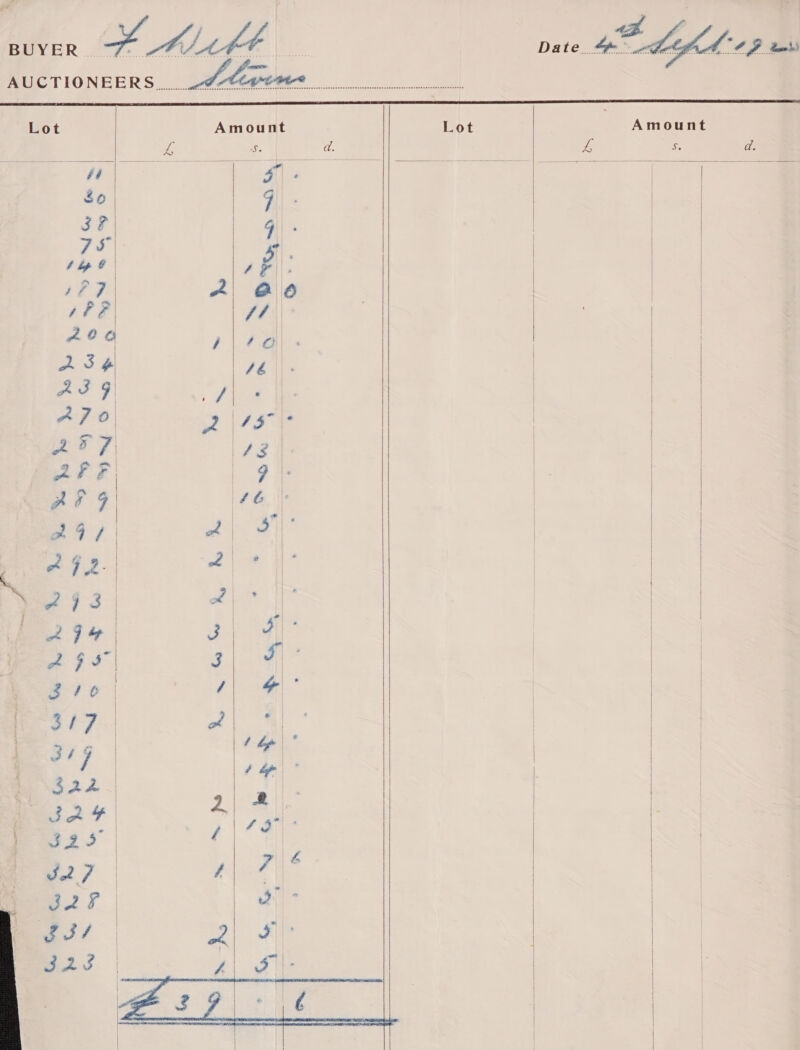 BUYER F Webb Date 4th Sept. 192
AUCTIONEERS Stevens
Lot Amount Lot Amount
£ s. d. £ s. d.
11 5 .
30 9 .
38 9 .
75 5 .
148 18 .
187 2 0 0
188 11
200 1 10 .
234 16 .
239 1 .
270 2 15 .
287 13
288 9 .
289 16 .
291 2 5 .
292 2 . .
293 2 . .
294 3 5 .
295 3 5 .
310 1 4 .
317 2 . .
319 14 .
322 14 .
324 2 2 .
325 1 15 .
327 1 7 6
328 5 -
331 2 5 .
323 1 5 -
£ 39 . 6